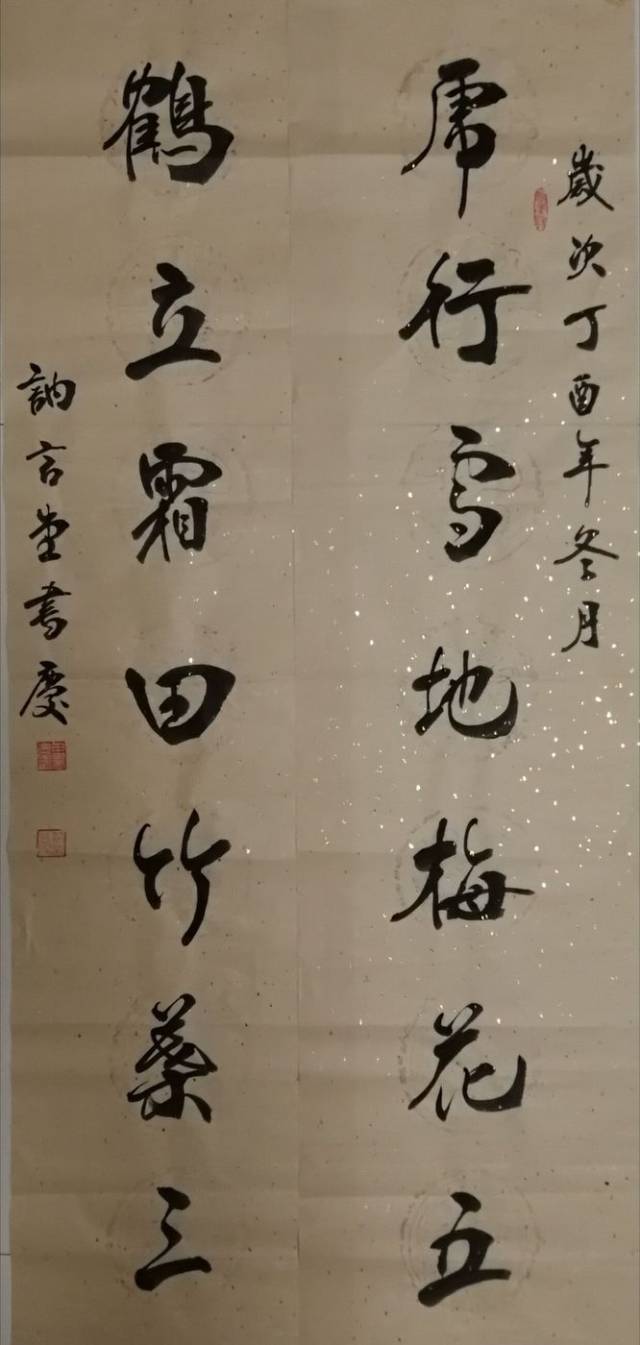 歲次丁酉年冬月
虎行雪地梅花五
鶴立霜田竹葉三
訥言堂書慶